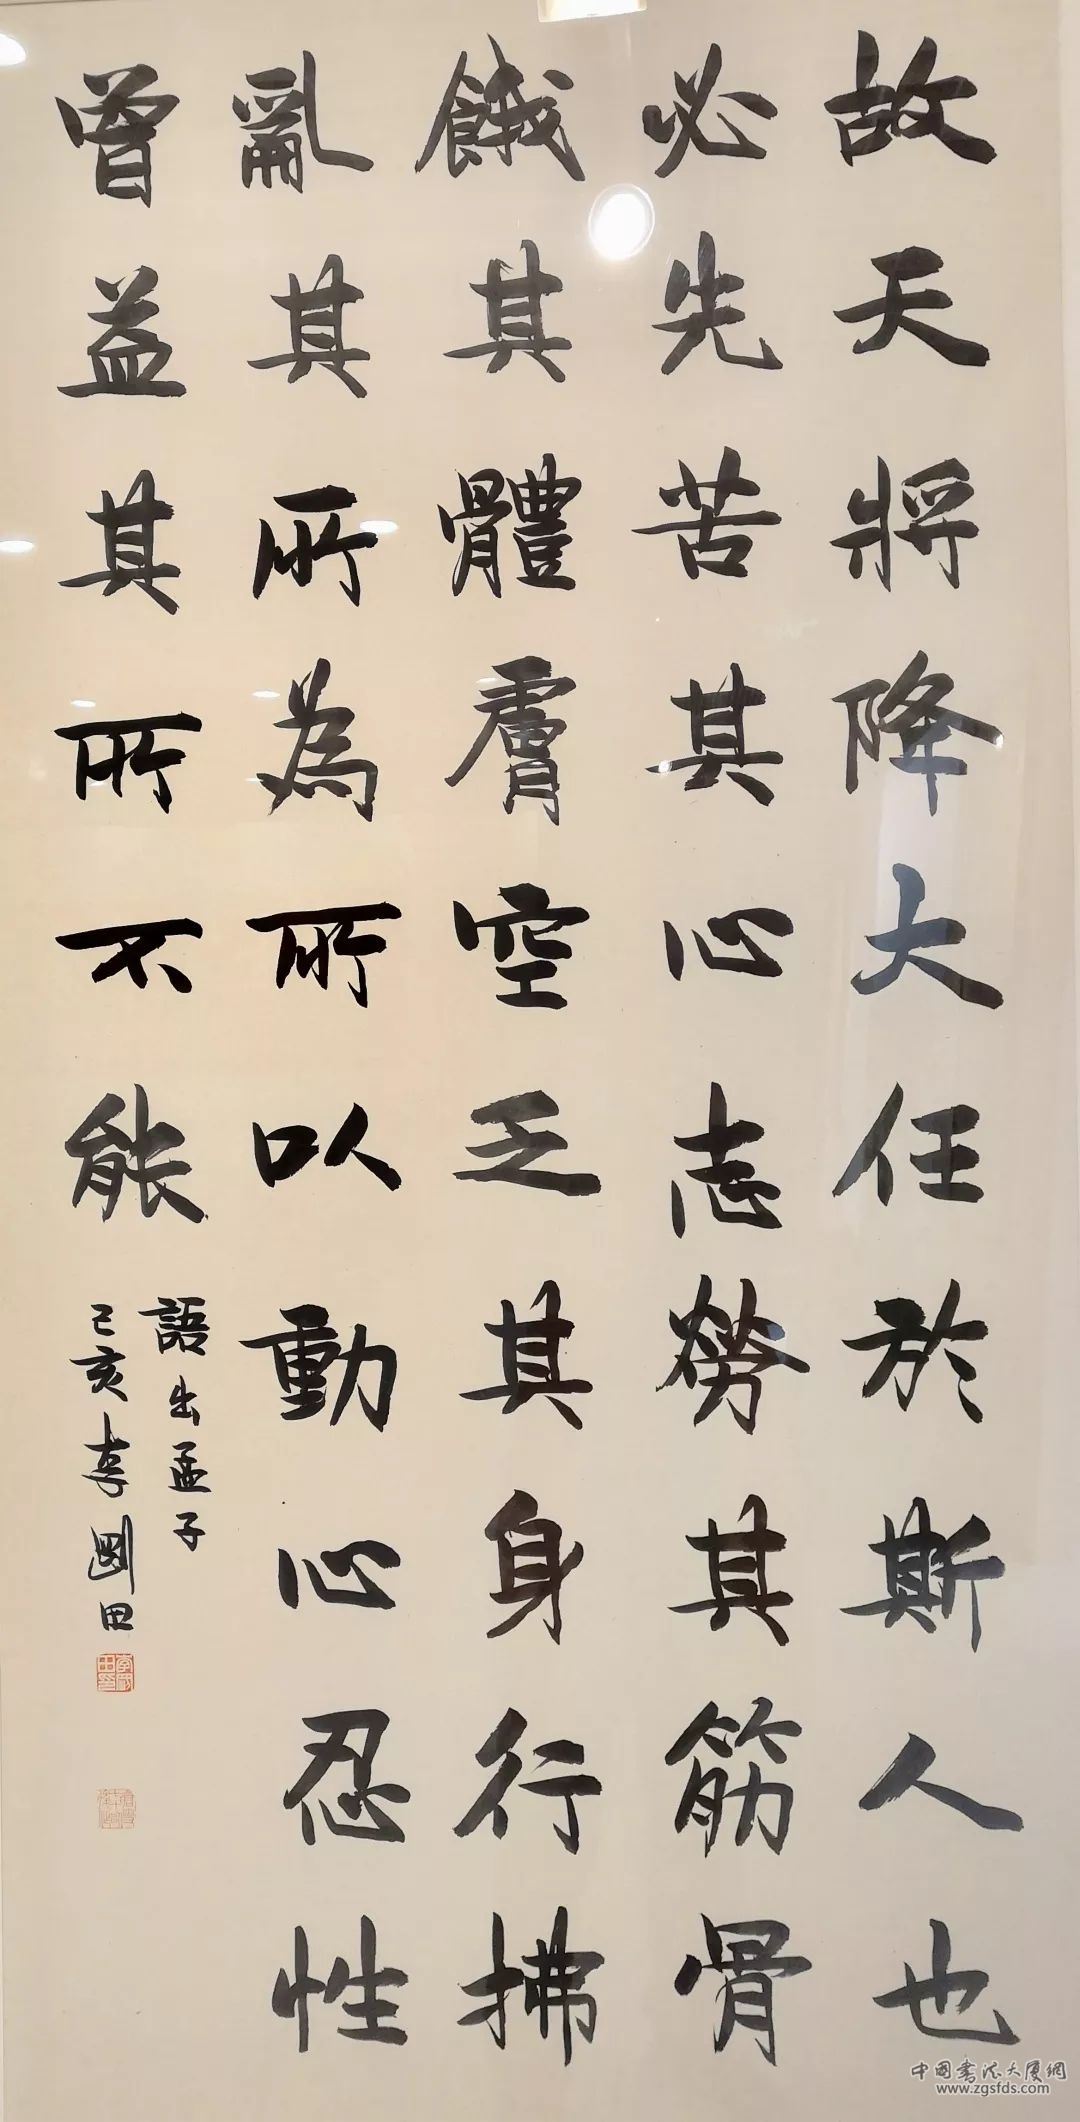 故天將降大任於斯人也
必先苦其心志勞其筋骨
餓其體膚空乏其身行拂
亂其所為所以動心忍性
曾益其所不能
語出孟子
己亥李剛田
中国书法大厦網
www.zgsfds.com